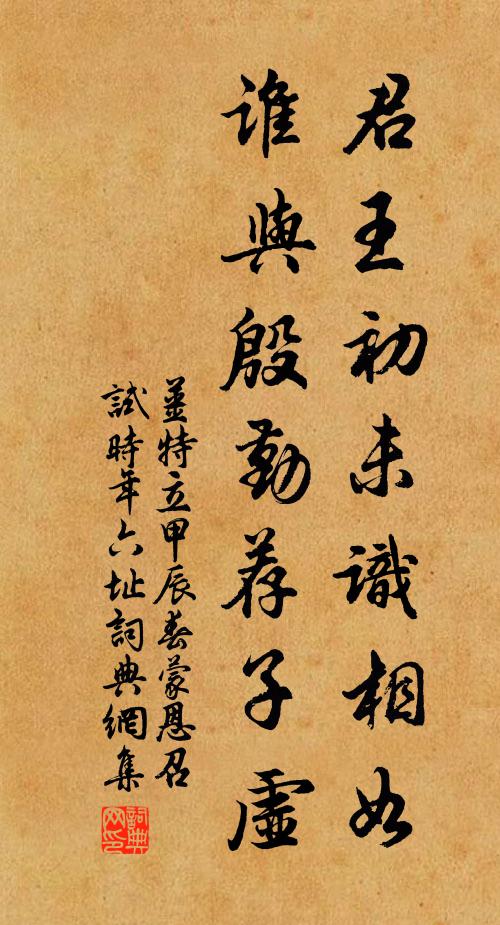 君王初未識相如
誰與殷勤荐子虛
姜特立甲辰春蒙恩召
試時年六址詞典網集
詞典网印